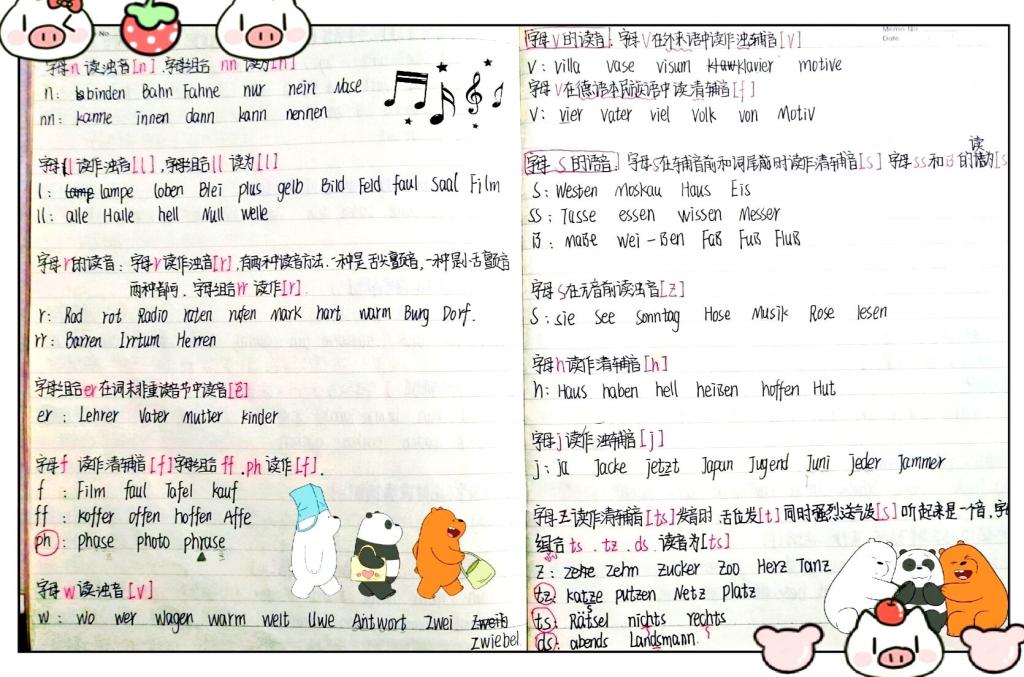 No.
字母n读浊音[n].字母组合 nn 读为[n]
n: binden Bahn Fahne nur nein Nase
nn: kanne innen dann kann nennen
字母l 读作浊音[l],字母组合ll 读为[l]
l: lampe loben Blei plus gelb Bild Feld faul Saal Film
ll: alle Halle hell Null welle
字母r的读音:字母r读作浊音[r],有两种读音方法.一种是舌尖颤音,一种是小舌颤音
两种都可.字母组合rr 读作[r].
r: Rad rot Radio raten rufen Mark hart warm Burg Dorf.
rr: Barren Irrtum Herren
字母组合er在词末非重读音节中读音[ɐ]
er: Lehrer Vater mutter kinder
字母f 读作清辅音[f]字母组合 ff .ph 读作[f].
f : Film faul Tafel kauf
ff : koffer offen hoffen Affe
ph: phase photo phrase
字母w读浊音[v]
w: wo wer wagen warm welt Uwe Antwort Zwei
Zwiebel
Memo No.
Date
字母V的读音:字母V在外来语中读作浊辅音[v]
V: villa vase visum klavier motive
字母V在德语本族词语中读清辅音[f]
V: vier vater viel volk von Motiv
字母S的读音: 字母S在辅音前和词尾时读作清辅音[s] 字母ss和ß的读为[s
S: Westen Moskau Haus Eis
SS: Tasse essen wissen Messer
ß: maße wei-ßen Faß Fuß Fluß
字母S在元音前读浊音[z]
S: sie See sonntag Hose Musik Rose lesen
字母h读作清辅音[h]
h: Haus haben hell heißen hoffen Hut
字母j读作浊辅音[j]
j: ja Jacke jetzt Japan Jugend Juni jeder Jammer
字母Z读作清辅音[ts]发音时.舌位发[t]同时强烈送气发[s]听起来是一个音.字母
组合ts.tz.ds.读音为[ts]
Z: zehn zucker Zoo Herz Tanz
tz: katze putzen Netz platz
ts: Rätsel nichts rechts
ds: abends Landsmann.